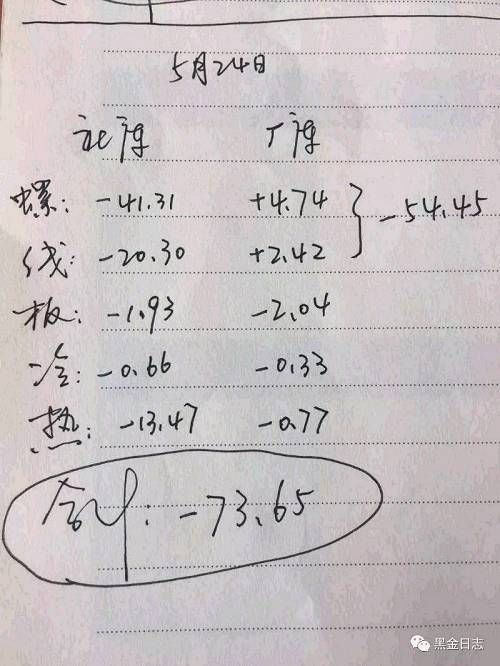 5月24日
社库 厂库
螺: -41.31 +4.74 } -54.45
线: -20.30 +2.42
板: -1.93 -2.04
冷: -0.66 -0.33
热: -13.47 -0.77
合计: -73.65
黑金日志